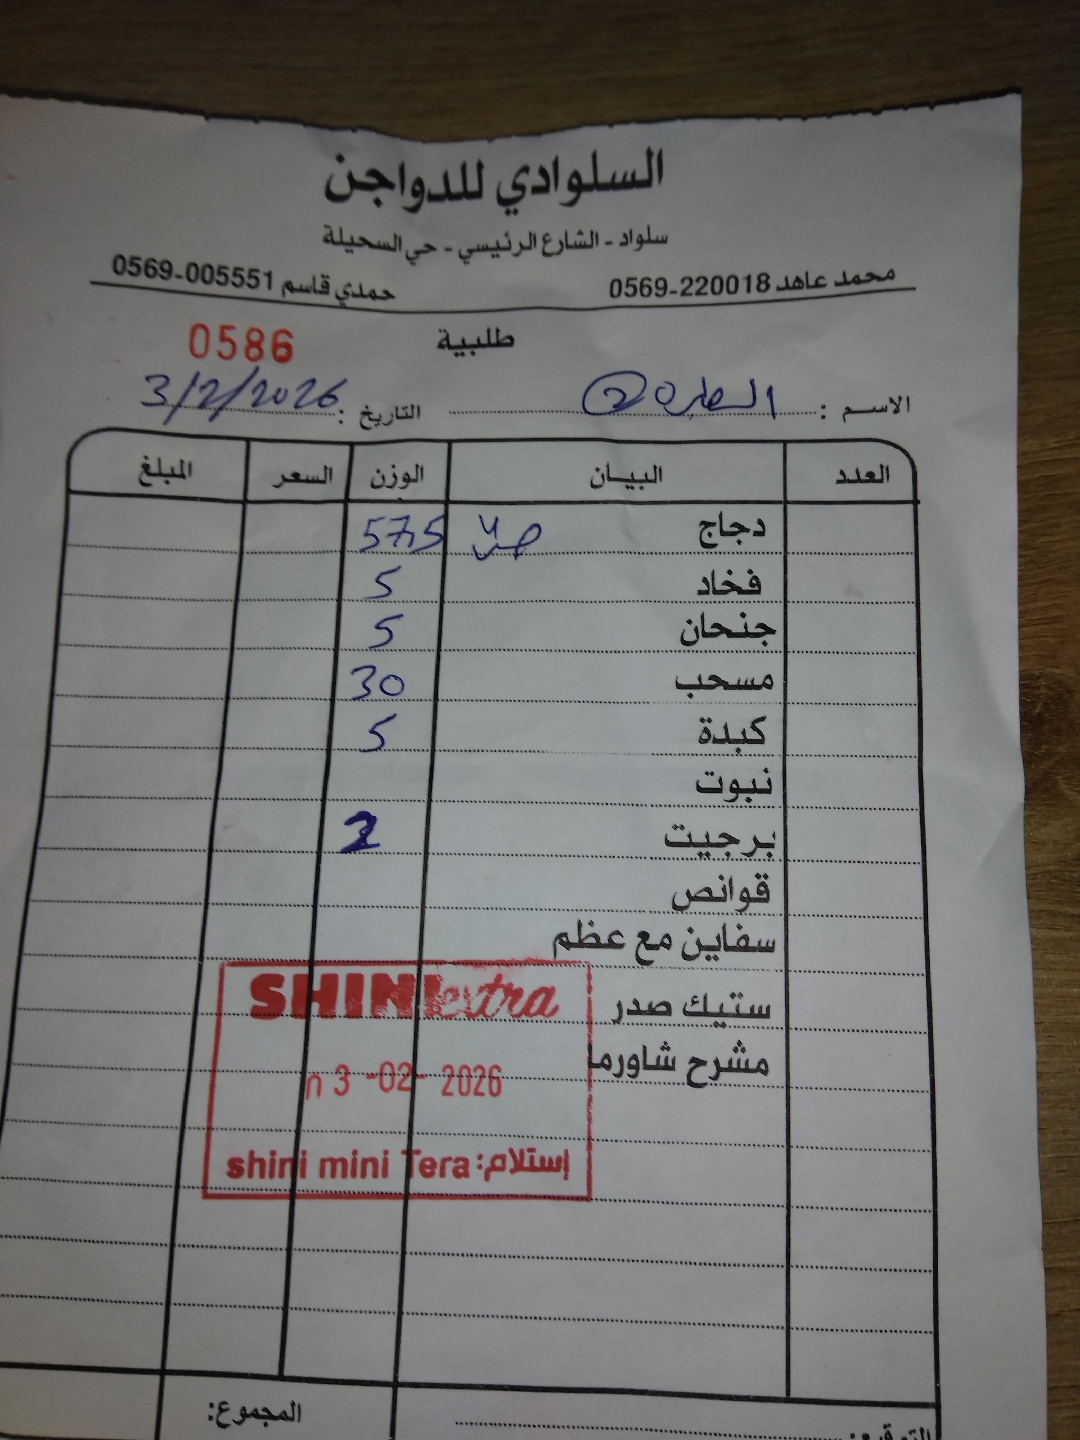 السلوادي للدواجن
سلواد - الشارع الرئيسي - حي السحيلة
محمد عاهد 0569-220018 حمدي قاسم 0569-005551
طلبية 0586
الاسم : ② التاريخ : 3/2/2026
العدد البيان الوزن السعر المبلغ
دجاج 57,5
فخاد 5
جنحان 5
مسحب 30
كبدة 5
نبوت
برجيت 2
قوانص
سفاين مع عظم
ستيك صدر
مشرح شاورما
SHINI extra
03 -02- 2026
إستلام: shini mini Tera
المجموع:
التوقيع: